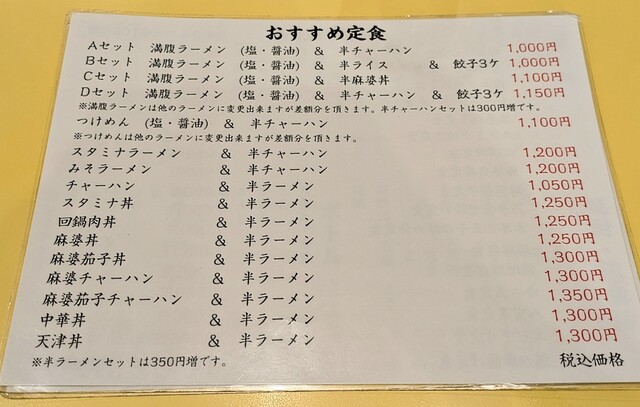 おすすめ定食
Aセット 満腹ラーメン (塩・醤油) & 半チャーハン 1,000円
Bセット 満腹ラーメン (塩・醤油) & 半ライス & 餃子3ケ 1,000円
Cセット 満腹ラーメン (塩・醤油) & 半麻婆丼 1,100円
Dセット 満腹ラーメン (塩・醤油) & 半チャーハン & 餃子3ケ 1,150円
※満腹ラーメンは他のラーメンに変更出来ますが差額分を頂きます。半チャーハンセットは300円増です。
つけめん (塩・醤油) & 半チャーハン 1,100円
※つけめんは他のラーメンに変更出来ますが差額分を頂きます。
スタミナラーメン & 半チャーハン 1,200円
みそラーメン & 半チャーハン 1,200円
チャーハン & 半ラーメン 1,050円
スタミナ丼 & 半ラーメン 1,250円
回鍋肉丼 & 半ラーメン 1,250円
麻婆丼 & 半ラーメン 1,250円
麻婆茄子丼 & 半ラーメン 1,300円
麻婆チャーハン & 半ラーメン 1,300円
麻婆茄子チャーハン & 半ラーメン 1,350円
中華丼 & 半ラーメン 1,300円
天津丼 & 半ラーメン 1,300円
※半ラーメンセットは350円増です。 税込価格